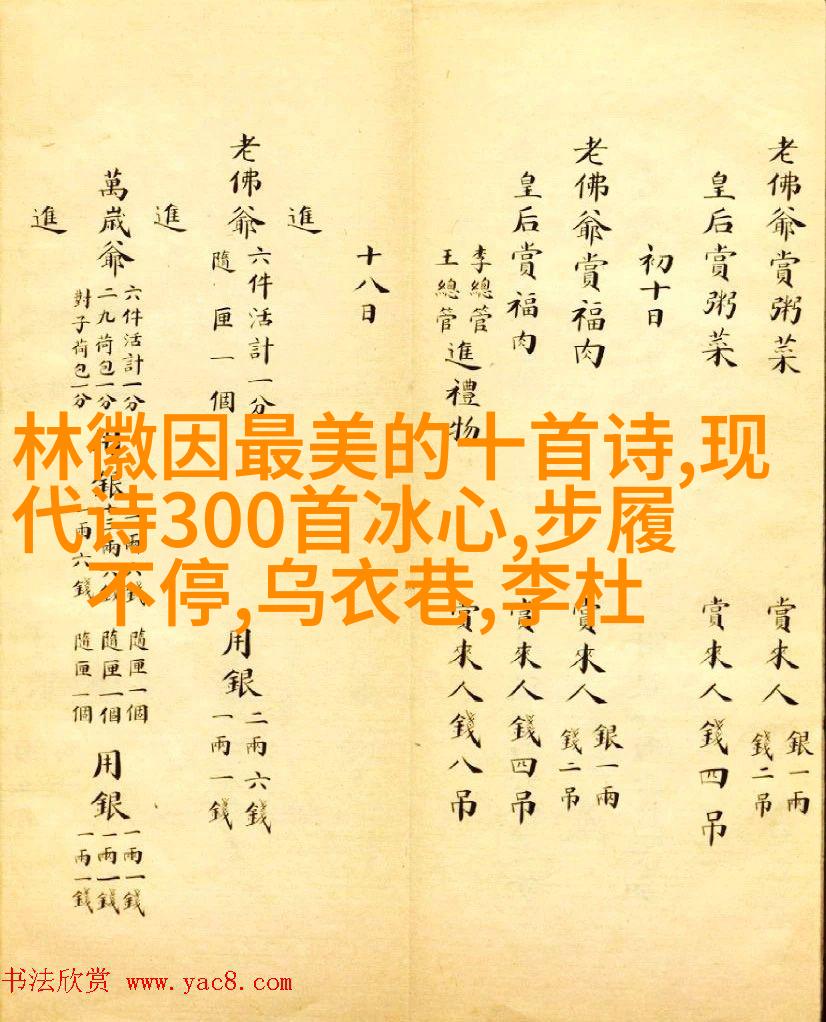 老佛爺賞粥菜 賞來人 銀一兩 錢二吊
皇后賞粥菜 賞來人錢四吊
初十日
老佛爺賞福肉 賞來人 銀一兩 錢二吊
皇后賞福肉 賞來人錢四吊
李總管 王總管 進禮物 賞來人錢八吊
十八日
進
老佛爺 六件活計一分 隨匣一個 用銀 二兩六錢 一兩一錢
進
萬歲爺 六件活計一分 二九荷包一分 對子荷包一分 銀 隨匣一個 隨匣一個 隨匣一個 用銀 一兩一錢 一兩一錢 一兩一錢
進
林徽因最美的十首诗,现
代诗300首冰心,步履
不停,乌衣巷,李杜
书法欣赏 www.yac8.com